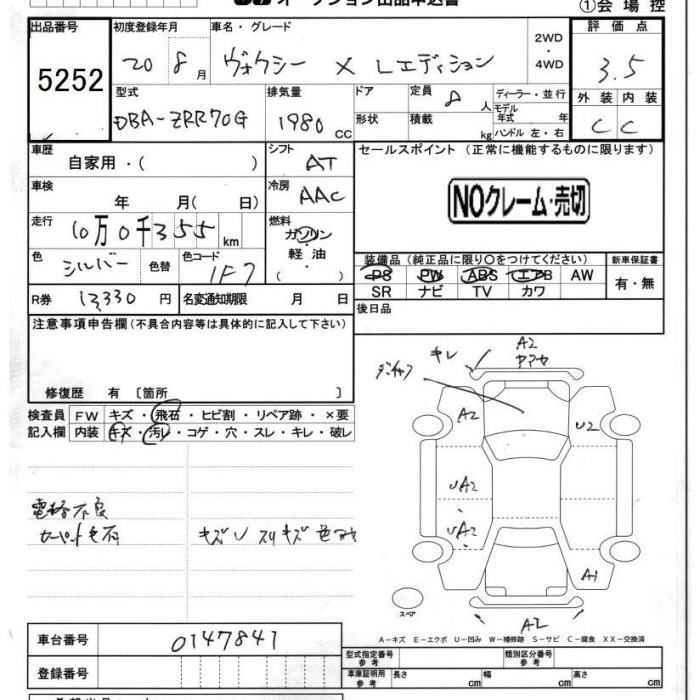 オークション出品申込書
①会場控
出品番号
5252
初度登録年月
20 8月
車名・グレード
ヴォクシー X Lエディション
2WD
4WD
評価点
3.5
型式
DBA-ZRR70G
排気量
1980 CC
ドア
形状
定員 8人
積載 kg
ディーラー・並行
モデル年式 年
ハンドル 左・右
外装 内装
C C
車歴
自家用・( )
シフト
AT
セールスポイント (正常に機能するものに限ります)
NOクレーム・売切
車検
年 月( 日)
冷房
AAC
走行
10万0千355km
燃料
ガソリン
軽油
( )
色
シルバー
色替
色コード
1F7
装備品 (純正品に限り○をつけてください)
PS PW ABS エアB AW
SR ナビ TV カワ
新車保証書
有・無
R券 13,330円
名変通知期限 月 日
後日品
注意事項申告欄(不具合内容等は具体的に記入して下さい)
修復歴 有 〔箇所 〕
検査員
記入欄
FW キズ・飛石・ヒビ割・リペア跡・×要
内装 キズ・汚レ・コゲ・穴・スレ・キレ・破レ
キレ
A2
A2
U2
UA2
UA2
A1
A2
スペア
電格不良
カーペット毛石
キズU スリキズ 色
A−キズ E−エクボ U−凹み W−補修跡 S−サビ C−腐食 XX−交換済
車台番号 0147841
登録番号
型式指定番号
参考
類別区分番号
参考
車庫証明用
参考
長さ cm
幅 cm
高さ cm